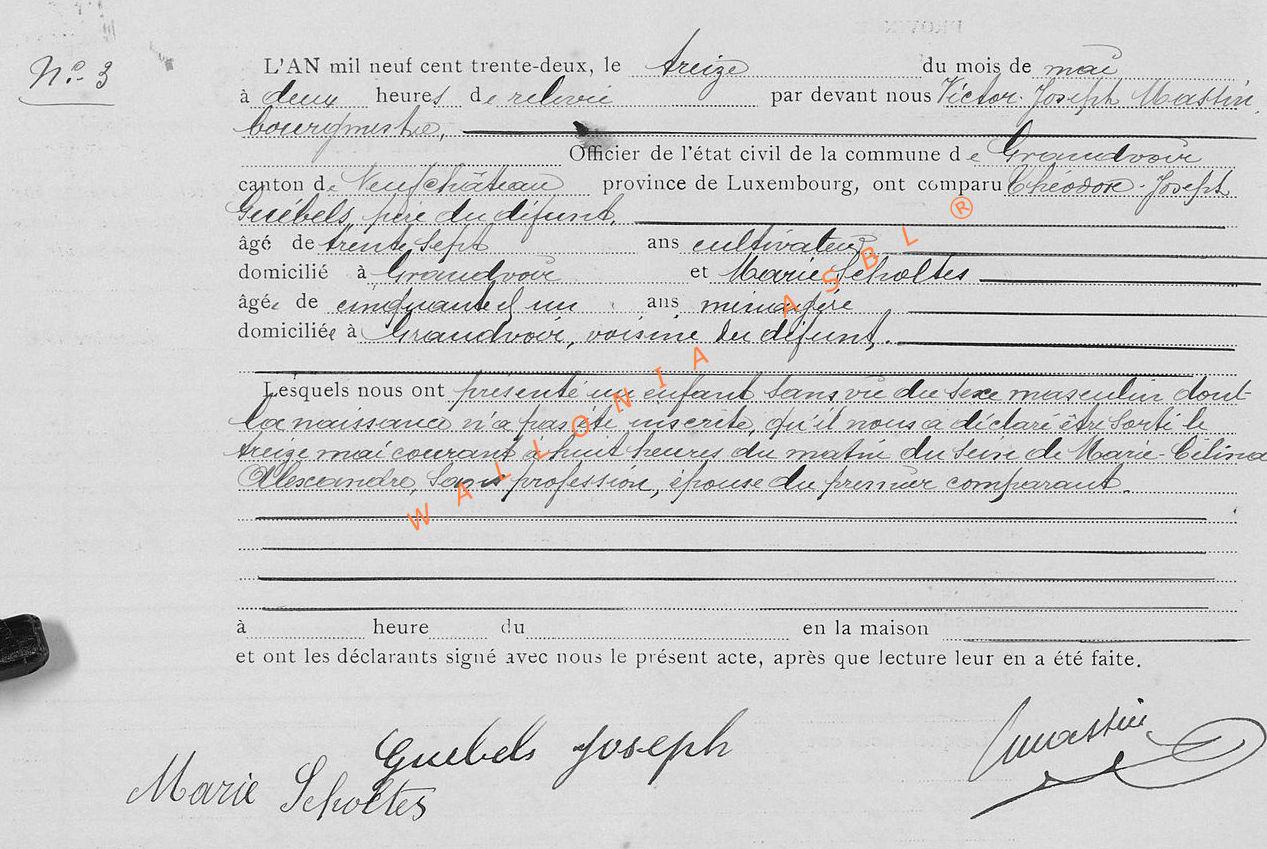 N° 3
L'AN mil neuf cent trente-deux, le treize du mois de mai
à deux heures de relevée par devant nous Victor Joseph Massin,
bourgmestre,
Officier de l'état civil de la commune de Grandvoir
canton de Neufchâteau province de Luxembourg, ont comparu Théodore-Joseph
Guébels, père du défunt,
âgé de trente sept ans cultivateur
domicilié à Grandvoir et Marie Scholtes
âgée de cinquante et un ans ménagère
domiciliée à Grandvoir, voisine du défunt,.
Lesquels nous ont présenté un enfant sans vie du sexe masculin dont
la naissance n'a pas été inscrite, qu'il nous a déclaré être sorti le
treize mai courant à huit heures du matin du sein de Marie-Célina
Alexandre, sans profession, épouse du premier comparant.
à heure du en la maison
et ont les déclarants signé avec nous le présent acte, après que lecture leur en a été faite.
Guebels Joseph
Marie Scholtes
Massin
WALLONIA ASBL ®